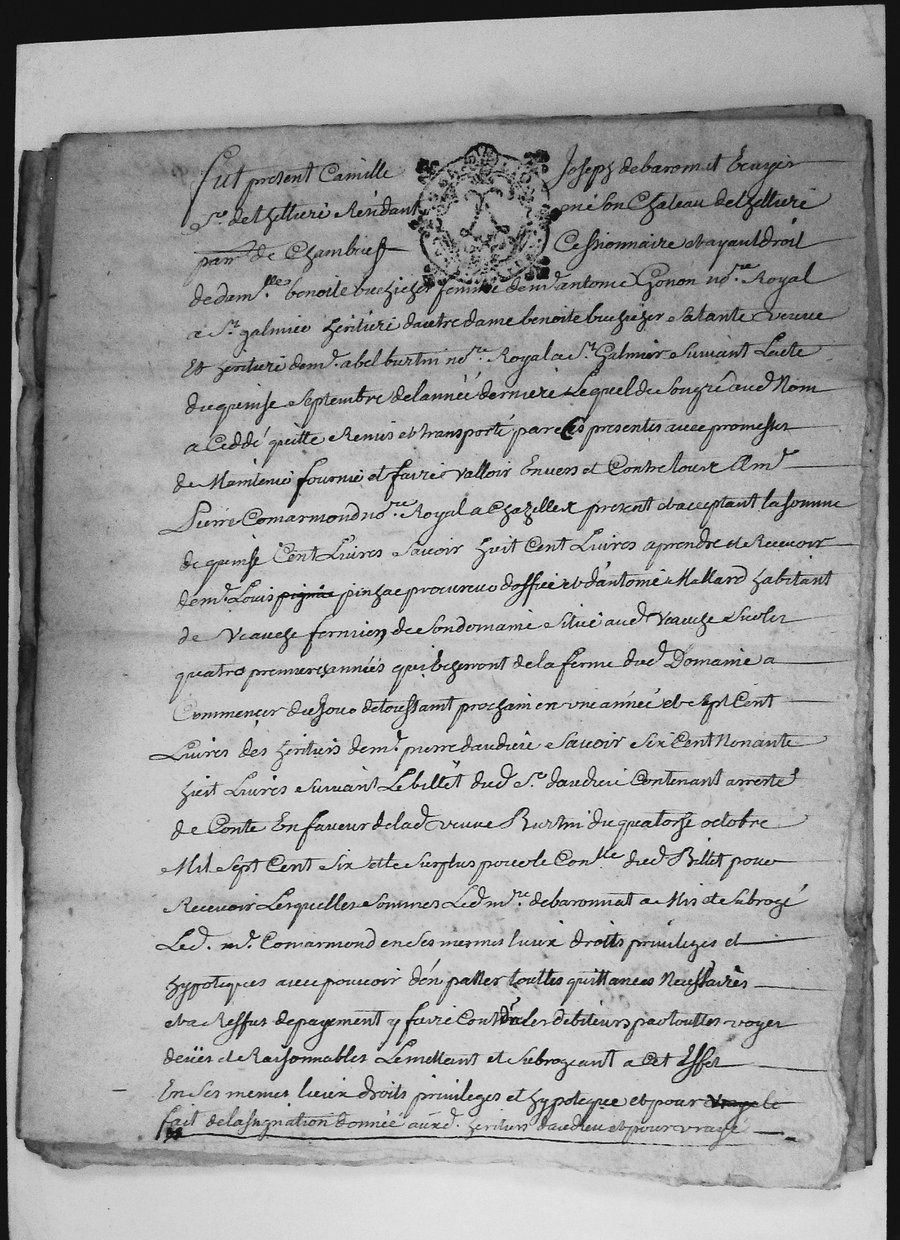 Fut present Camille Joseph debaronnat Ecuyer
Sr. dethelliere Residant en son Chateau dethelliere
parr. de Chambries Cessionnaire etayant droit
dedamlle benoite femme demr. antoine Gonon nore. Royal
a St. galmier heritiere dautre dame benoite satante veuve
Et heritiere demr. abel burtin nore. Royal a St. Galmier suivant Lacte
du quinse septembre delannéé derniere Lequel de songré aud. Nom
a Ceddé quitte Remis et transporté par Ces presentes avec promesse
de Maintenir fournir et faire valloir Envers et Contre tous a mr.
Pierre Comarmond nore. Royal a Chazelles present et acceptant la somme
de quinse Cent Livres Savoir huit Cent Livres a prendre et Recevoir
demr. Louis pinhac procureur doffice et dantoine Mallard habitant
de Veauche fermiers de son domaine situé aud. Veauche
quatre premieres années qui echeront de la ferme dud. Domaine a
Commencer du Jour de toussaint prochain en une année et sept Cent
Livres des heritiers demr. pierre daudieu Savoir Six Cent Nonante
huit Livres suivant Le billet dud. Sr. daudieu Contenant arresté
de Conte En faveur de lad. veuve Burtin du quatorse octobre
Mil Sept Cent Six et le surplus pour le Conlle. dud. Billet pour
Recevoir Lesquelles Sommes Led. mre. debaronnat a Mis et subrogé
Led. mr. Comarmond en Ses mesmes lieux droits privileges et
hypoteques avec pouvoir den passer touttes quittances Necessaires
et a Reffus de payement y faire Contdre. Les debiteurs par touttes voyes
deües et Raisonnables Le mettant et subrogeant a Cet Effet
En Ses mesmes Lieux droits privileges et hypoteque et pour le
fait de lasignation donnée auxd. heritiers daudieu et pour